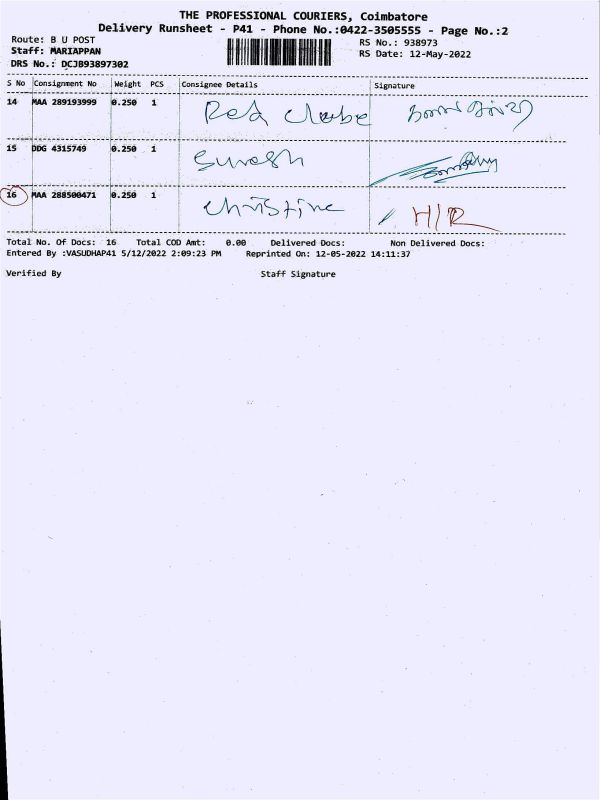 THE PROFESSIONAL COURIERS, Coimbatore
Delivery Runsheet - P41 - Phone No.:0422-3505555 - Page No.:2
Route: B U POST
RS No.: 938973
Staff: MARIAPPAN
RS Date: 12-May-2022
DRS No.: DCJB93897302
S No Consignment No Weight PCS Consignee Details Signature
14 MAA 289193999 0.250 1 Red
15 DDG 4315749 0.250 1 Suresh
16 MAA 288500471 0.250 1 Christine H/R
Total No. Of Docs: 16 Total COD Amt: 0.00 Delivered Docs: Non Delivered Docs:
Entered By :VASUDHAP41 5/12/2022 2:09:23 PM Reprinted On: 12-05-2022 14:11:37
Verified By Staff Signature